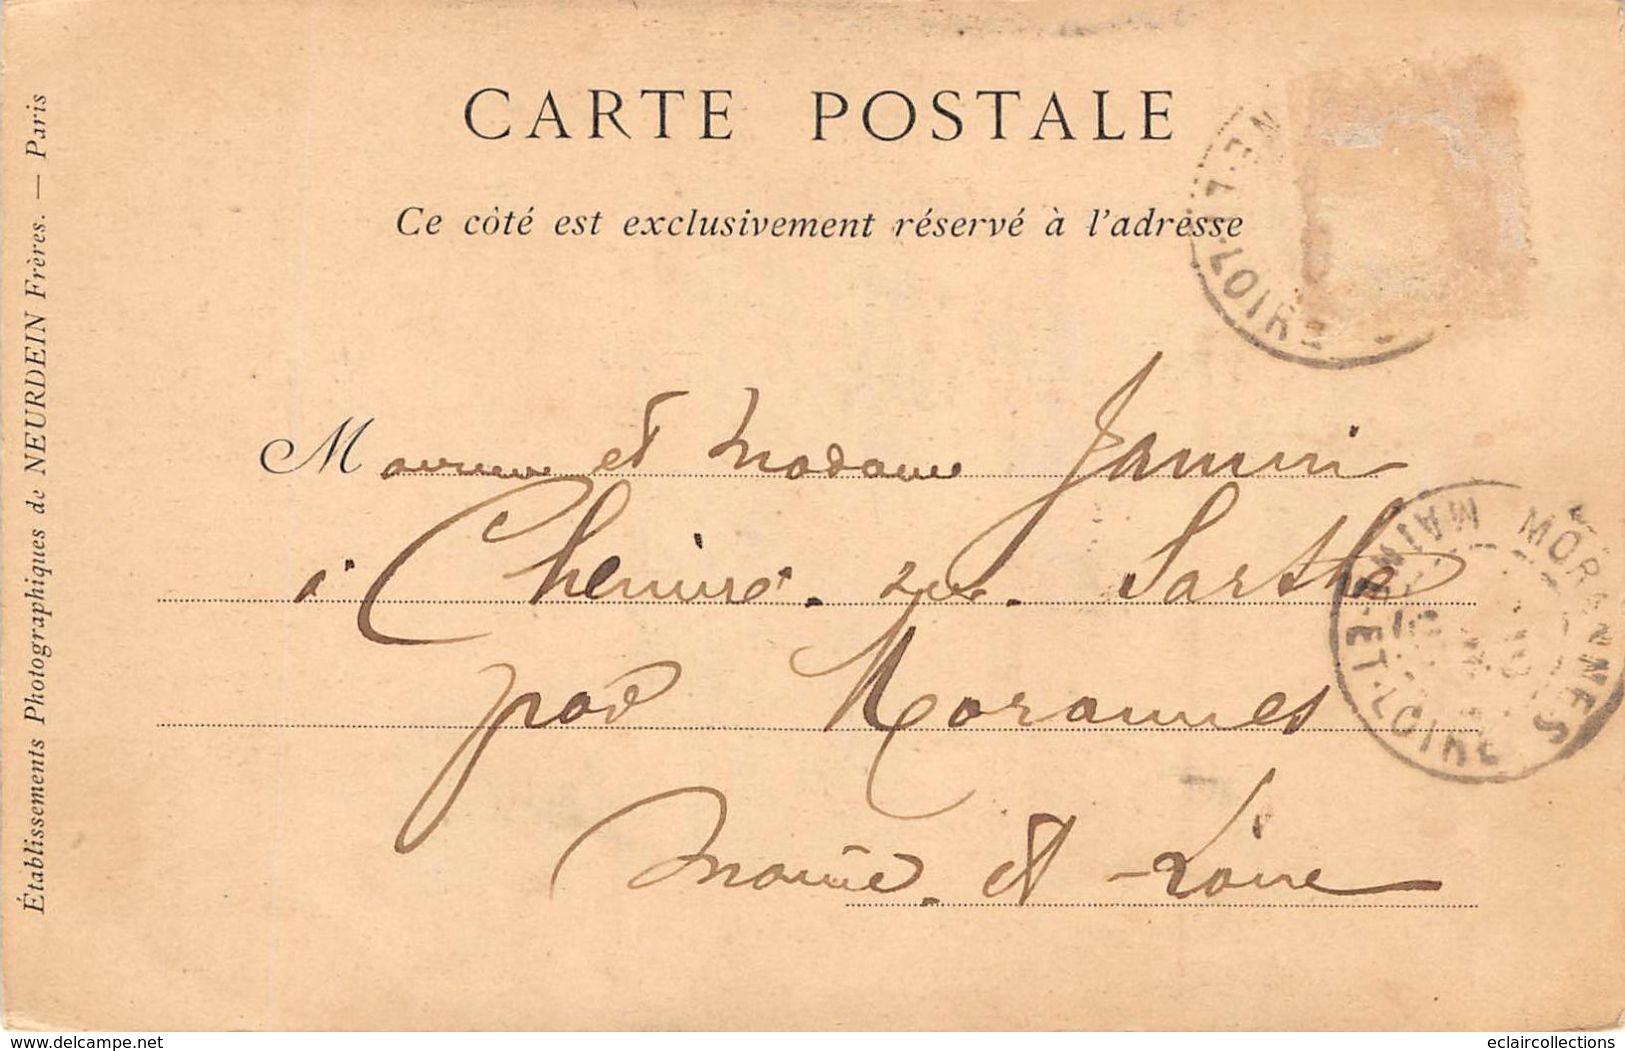 CARTE POSTALE
Ce côté est exclusivement réservé à l'adresse
Établissements Photographiques de NEURDEIN Frères. — Paris
LOIRE
Monsieur et Madame Jamin
à Chemiré-sur-Sarthe
par Morannes
Maine-et-Loire
MORANNES
MAINE-ET-LOIRE
www.delcampe.net
eclaircollections